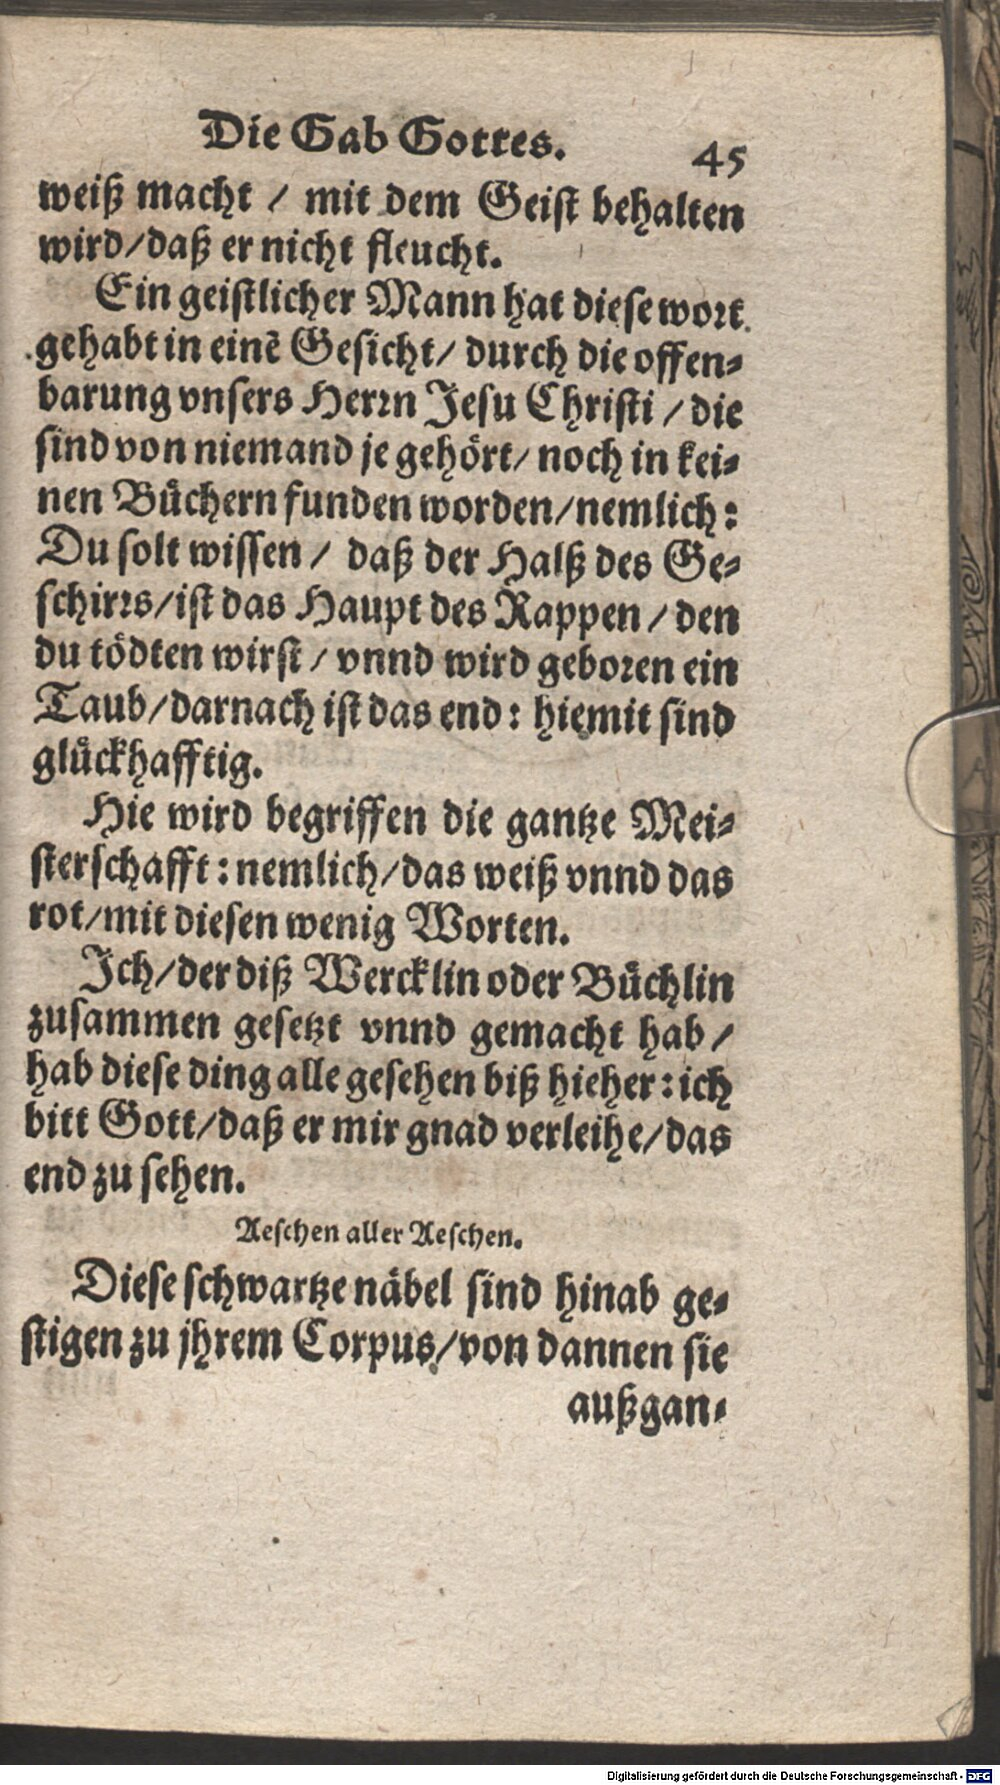 Die Gab Gottes. 45
weiß macht / mit dem Geist behalten
wird/daß er nicht fleucht.
Ein geistlicher Mann hat diese wort
gehabt in einē Gesicht/ durch die offen-
barung vnsers Herrn Jesu Christi / die
sind von niemand je gehört/ noch in kei-
nen Bůchern funden worden/nemlich:
Du solt wissen / daß der Halß des Ge-
schirrs/ist das Haupt des Rappen / den
du tödten wirst / vnnd wird geboren ein
Taub/darnach ist das end: hiemit sind
glůckhafftig.
Hie wird begriffen die gantze Mei-
sterschafft: nemlich/das weiß vnnd das
rot/mit diesen wenig Worten.
Ich/der diß Wercklin oder Bůchlin
zusammen gesetzt vnnd gemacht hab /
hab diese ding alle gesehen biß hieher: ich
bitt Gott/daß er mir gnad verleihe/das
end zu sehen.
Aeschen aller Aeschen.
Diese schwartze näbel sind hinab ge-
stigen zu jhrem Corpus/von dannen sie
außgan-
Digitalisierung gefördert durch die Deutsche Forschungsgemeinschaft - DFG